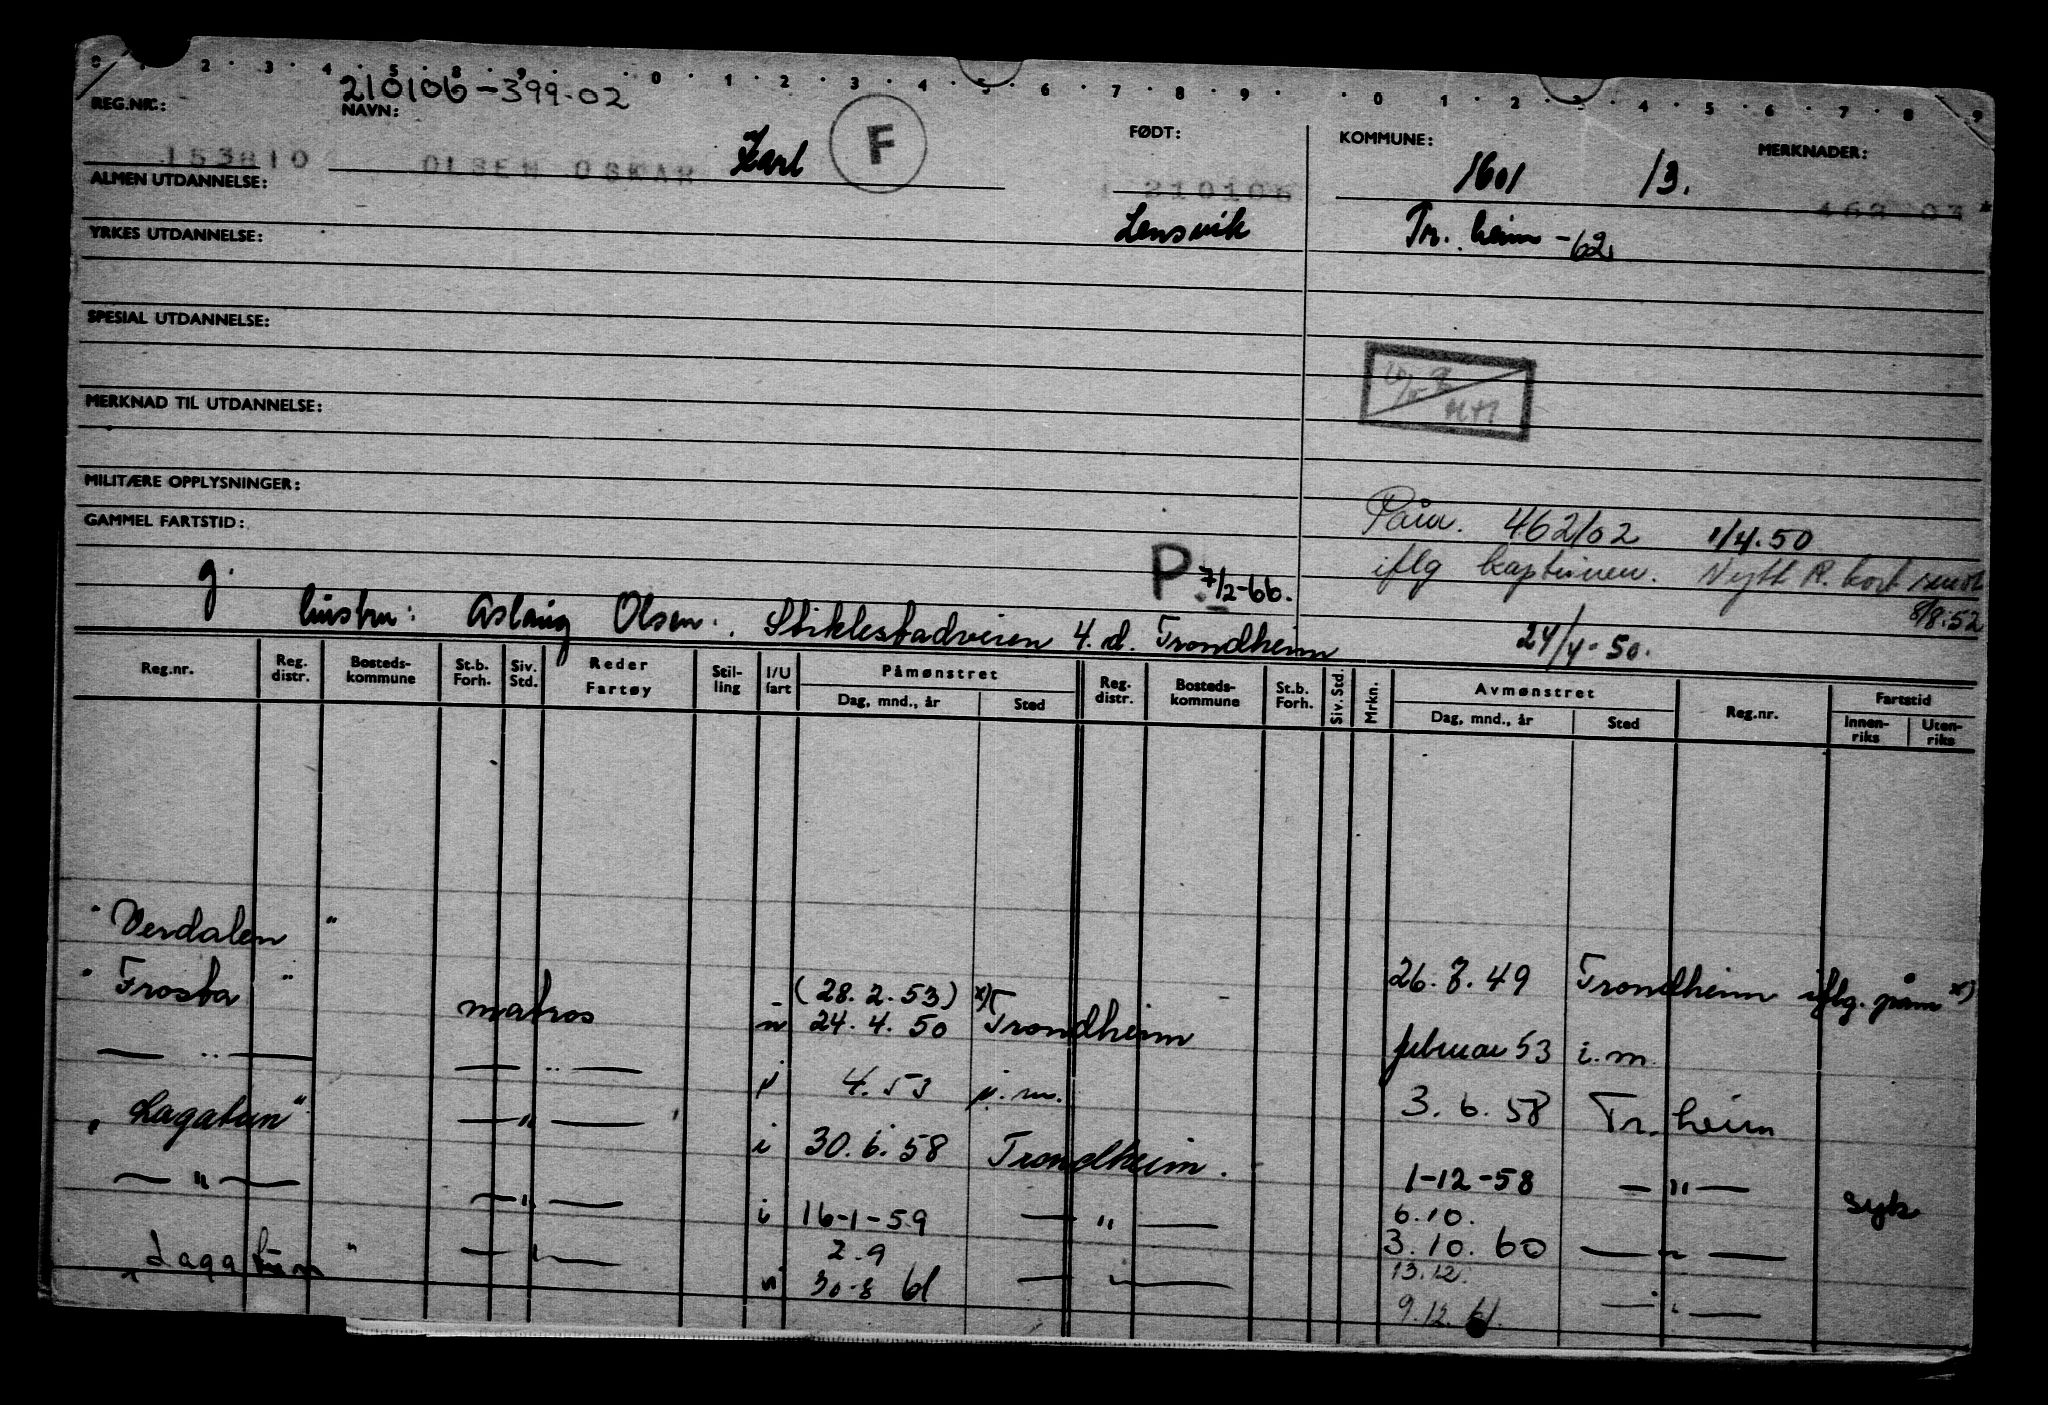 0 . 2 . 3 . 4 . 5 . 8 . 9 . . 0 . 1 . 2 . 3 . 4 . 5 . 6 . 7 . 8 . 9 . . 0 . 1 . 2 . 3 . 4 . 5 . 6 . 7 . 8 . 9
210106-399.02
REG.NR.: NAVN: FØDT: KOMMUNE: MERKNADER:
153810 OLSEN OSKAR Karl F 210106 1601 13.
ALMEN UTDANNELSE:
Lensvik Tr.heim -62
YRKES UTDANNELSE:
SPESIAL UTDANNELSE:
MERKNAD TIL UTDANNELSE:
MILITÆRE OPPLYSNINGER:
462/02 1/4.50
GAMMEL FARTSTID:
iflg kaptinen. Nytt R. kort sendt
g. P. 7/2-66. 8/8.52
hustru: Aslaug Olsen. Stiklestadveien 4.d. Trondheim 24/4-50.
Reg.nr. Reg. distr. Bosteds-kommune St.b. Forh. Siv. Std. Reder Fartøy Stil-ling I/U fart Påmønstret Reg. distr. Bosteds-kommune St.b. Forh. Siv. Std. Mrkn. Avmønstret Reg.nr. Fartstid
Dag, mnd., år Sted Dag, mnd., år Sted Innen-riks Uten-riks
"Verdalen" 26.8.49 Trondheim iflg. påm x)
"Frosta" matros (28.2.53) x)
24.4.50 Trondheim februar 53 i.m.
— " — — " — 4.53 i.m. 3.6.58 Tr.heim
"Lagatun" — " — i 30.6.58 Trondheim. 1-12-58 — " — syk
— " — — " — i 16-1-59 — " — 6.10.
3.10.60 — " —
2.9 13.12.
"Lagatun" — " — 30-8 61 — " — 9.12.61. — " —